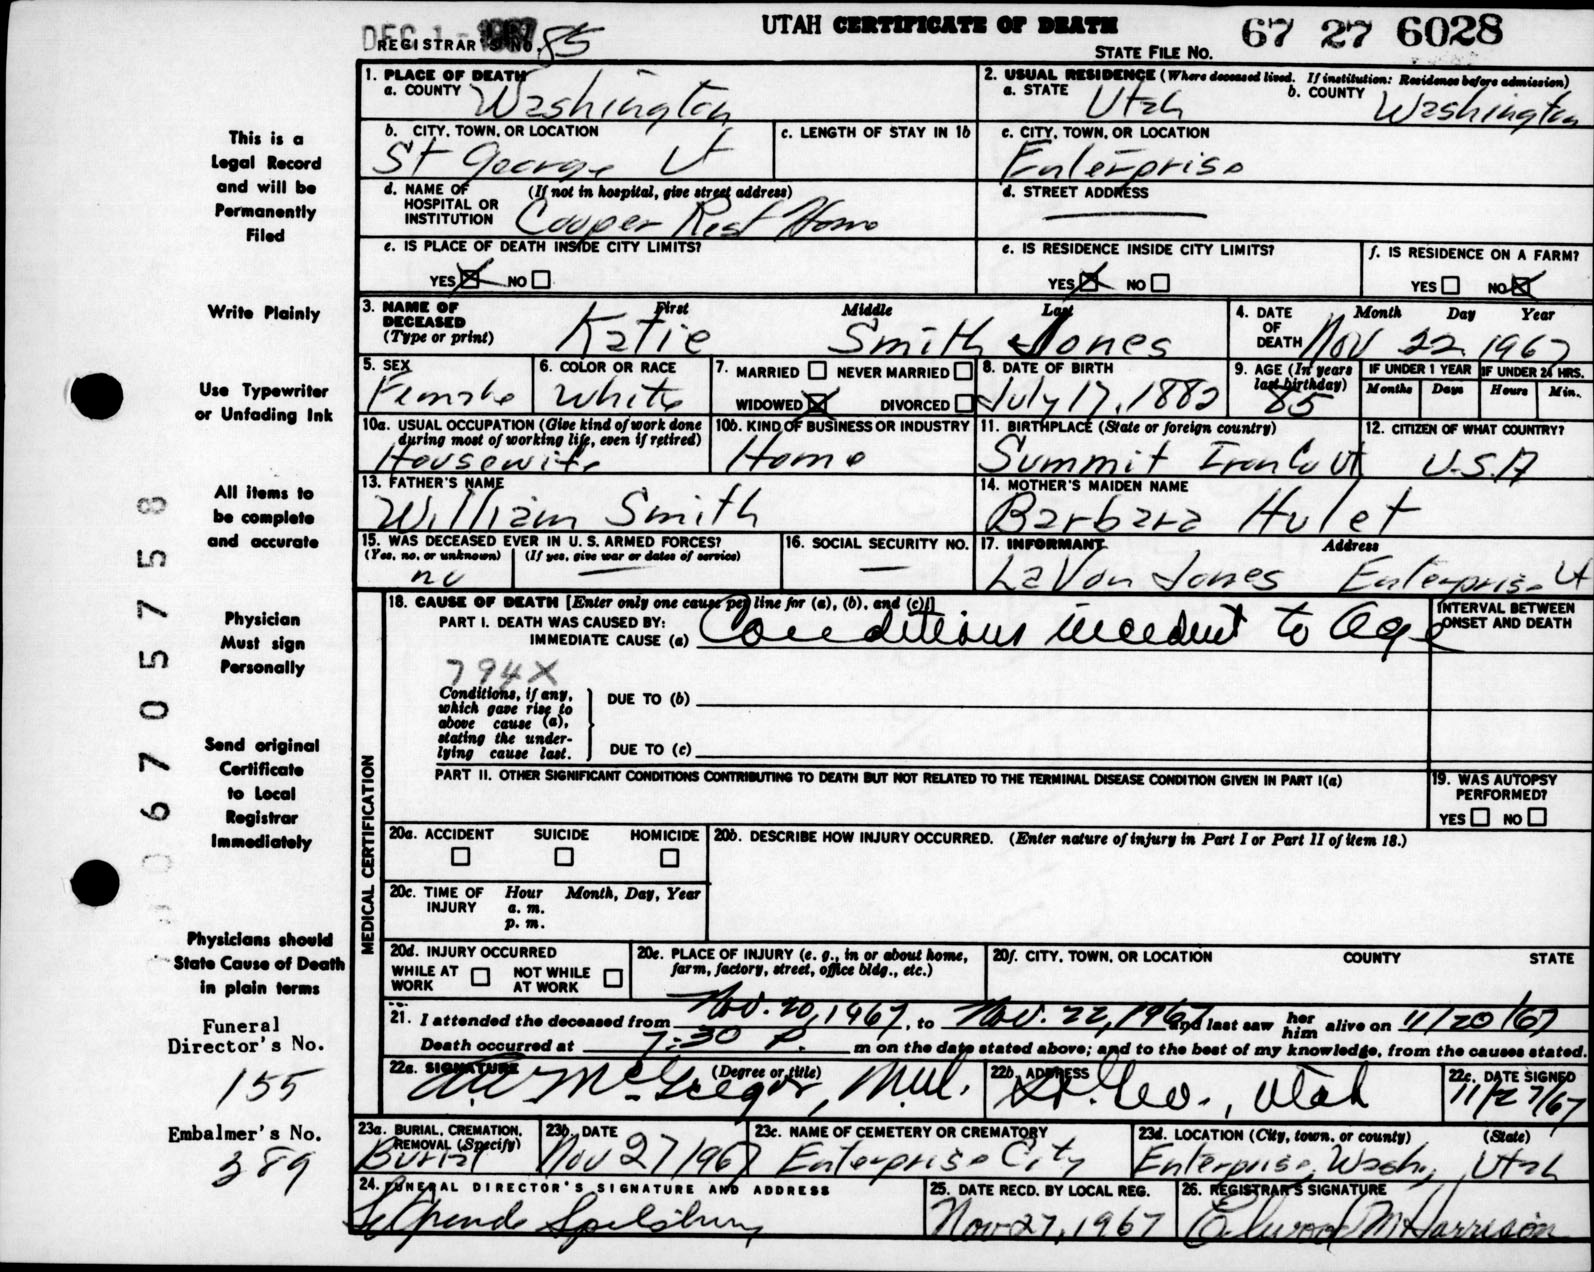 DEC 1 - 1967
REGISTRAR'S NO. 85
UTAH CERTIFICATE OF DEATH
STATE FILE NO. 67 27 6028
This is a
Legal Record
and will be
Permanently
Filed
Write Plainly
Use Typewriter
or Unfading Ink
All items to
be complete
and accurate
Physician
Must sign
Personally
Send original
Certificate
to Local
Registrar
Immediately
Physicians should
State Cause of Death
in plain terms
Funeral
Director's No.
155
Embalmer's No.
389
0 6 7 0 5 7 5 8
1. PLACE OF DEATH
a. COUNTY Washington
2. USUAL RESIDENCE (Where deceased lived. If institution: Residence before admission)
a. STATE Utah b. COUNTY Washington
b. CITY, TOWN, OR LOCATION
St George Ut
c. LENGTH OF STAY IN 1b
c. CITY, TOWN, OR LOCATION
Enterprise
d. NAME OF HOSPITAL OR INSTITUTION (If not in hospital, give street address)
Cooper Rest Home
d. STREET ADDRESS
e. IS PLACE OF DEATH INSIDE CITY LIMITS?
YES ☒ NO ☐
e. IS RESIDENCE INSIDE CITY LIMITS?
YES ☒ NO ☐
f. IS RESIDENCE ON A FARM?
YES ☐ NO ☒
3. NAME OF DECEASED (Type or print) First Middle Last
Katie Smith Jones
4. DATE OF DEATH Month Day Year
Nov 22 1967
5. SEX
Female
6. COLOR OR RACE
White
7. MARRIED ☐ NEVER MARRIED ☐
WIDOWED ☒ DIVORCED ☐
8. DATE OF BIRTH
July 17, 1882
9. AGE (In years last birthday)
85
IF UNDER 1 YEAR
Months Days
IF UNDER 24 HRS.
Hours Min.
10a. USUAL OCCUPATION (Give kind of work done during most of working life, even if retired)
Housewife
10b. KIND OF BUSINESS OR INDUSTRY
Home
11. BIRTHPLACE (State or foreign country)
Summit Iron Co Ut
12. CITIZEN OF WHAT COUNTRY?
U.S.A
13. FATHER'S NAME
William Smith
14. MOTHER'S MAIDEN NAME
Barbara Hulet
15. WAS DECEASED EVER IN U. S. ARMED FORCES?
(Yes, no, or unknown) (If yes, give war or dates of service)
no
16. SOCIAL SECURITY NO.
17. INFORMANT Address
LaVon Jones Enterprise Ut
MEDICAL CERTIFICATION
18. CAUSE OF DEATH [Enter only one cause per line for (a), (b), and (c)]
PART I. DEATH WAS CAUSED BY:
IMMEDIATE CAUSE (a) Conditions incident to age
INTERVAL BETWEEN ONSET AND DEATH
794X
Conditions, if any, which gave rise to above cause (a), stating the underlying cause last.
DUE TO (b)
DUE TO (c)
PART II. OTHER SIGNIFICANT CONDITIONS CONTRIBUTING TO DEATH BUT NOT RELATED TO THE TERMINAL DISEASE CONDITION GIVEN IN PART I(a)
19. WAS AUTOPSY PERFORMED?
YES ☐ NO ☐
20a. ACCIDENT SUICIDE HOMICIDE
☐ ☐ ☐
20b. DESCRIBE HOW INJURY OCCURRED. (Enter nature of injury in Part I or Part II of item 18.)
20c. TIME OF INJURY Hour Month, Day, Year
a. m.
p. m.
20d. INJURY OCCURRED
WHILE AT WORK ☐ NOT WHILE AT WORK ☐
20e. PLACE OF INJURY (e. g., in or about home, farm, factory, street, office bldg., etc.)
20f. CITY, TOWN, OR LOCATION COUNTY STATE
21. I attended the deceased from Nov. 20, 1967, to Nov. 22, 1967 and last saw her him alive on 11/20/67
Death occurred at 7:30 P. m on the date stated above; and to the best of my knowledge, from the causes stated.
22a. SIGNATURE (Degree or title)
McGregor, M.D.
22b. ADDRESS
St. Geo., Utah
22c. DATE SIGNED
11/27/67
23a. BURIAL, CREMATION, REMOVAL (Specify)
Burial
23b. DATE
Nov 27 1967
23c. NAME OF CEMETERY OR CREMATORY
Enterprise City
23d. LOCATION (City, town, or county) (State)
Enterprise, Wash, Utah
24. FUNERAL DIRECTOR'S SIGNATURE AND ADDRESS
Spilsbury
25. DATE RECD. BY LOCAL REG.
Nov 27, 1967
26. REGISTRAR'S SIGNATURE
Elwood M Harrison